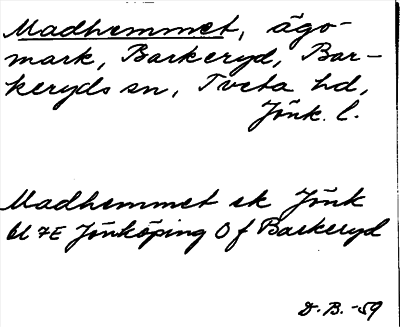 Madhemmet, ägo-
mark, Barkeryd, Bar-
keryds sn, Tveta hd,
Jönk. l.
Madhemmet ek Jönk
bl 7E Jönköping Of Barkeryd
D.B. -59